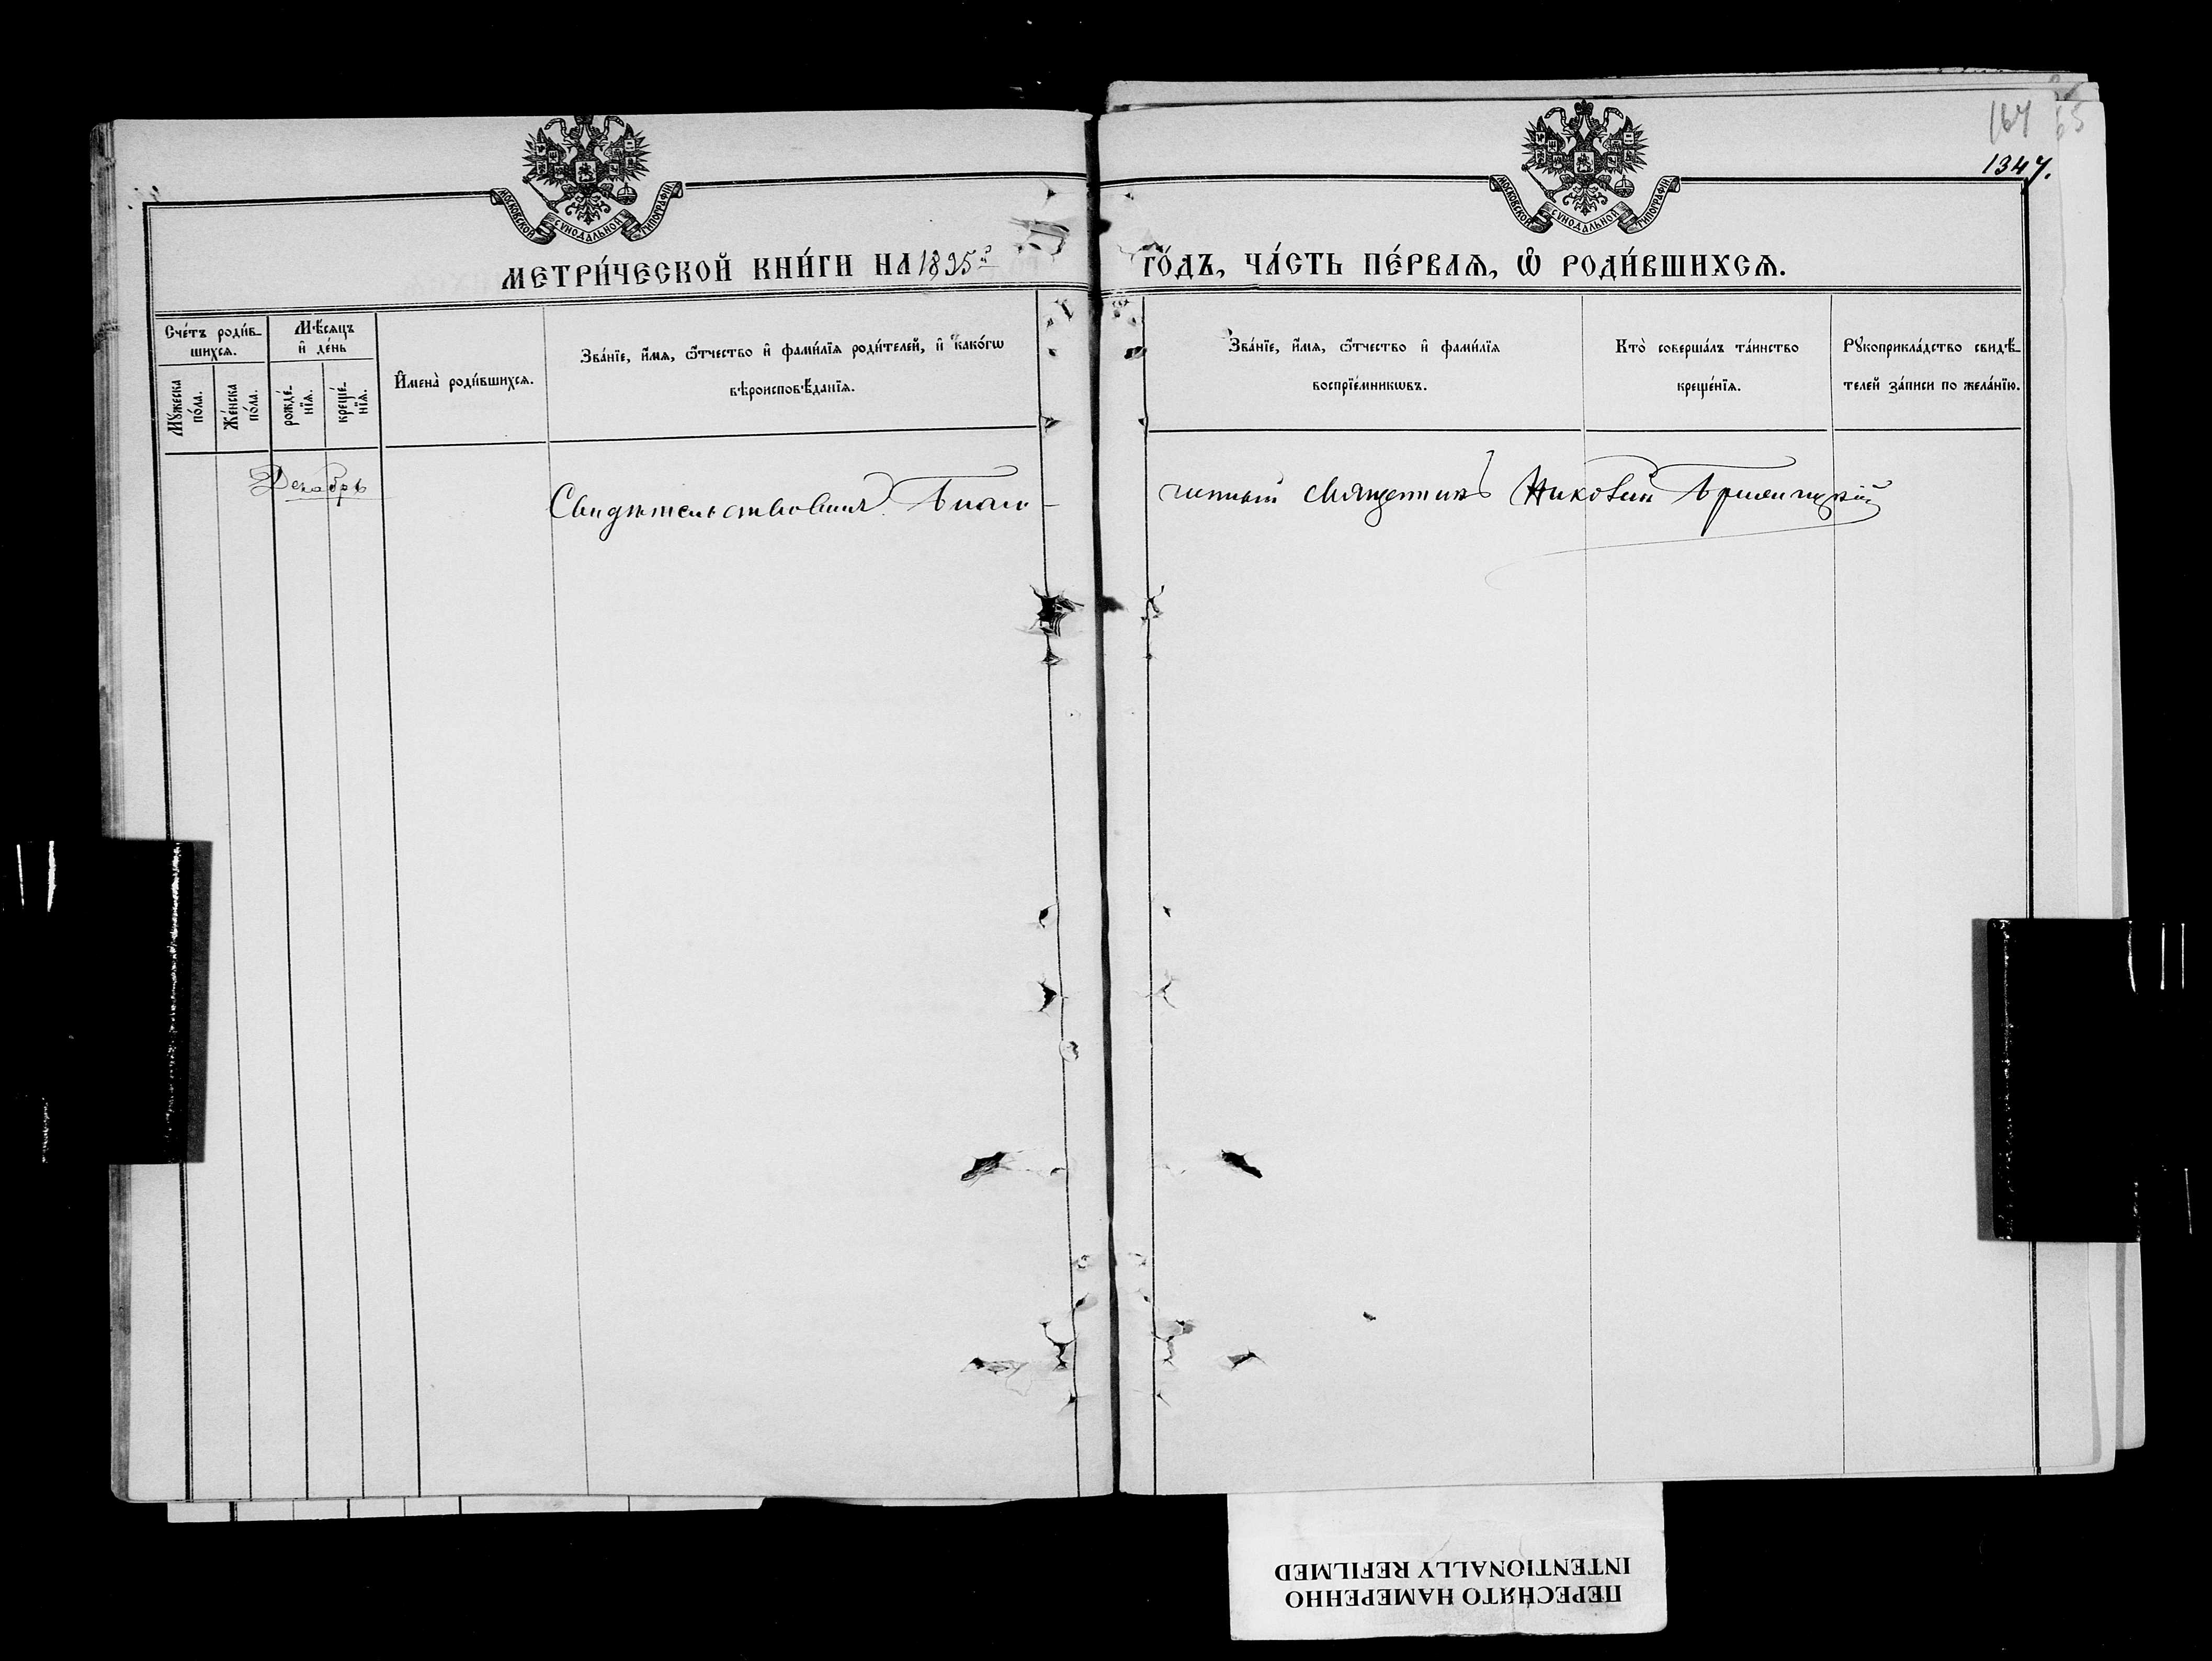 164 65
1347.
МОСКОВСКОЙ СѴНОДАЛЬНОЙ ТИПОГРАФІИ
МОСКОВСКОЙ СѴНОДАЛЬНОЙ ТИПОГРАФІИ
МЕТРИ́ЧЕСКОЙ КНИ́ГИ НА 1895й
ГО́ДЪ, ЧА́СТЬ ПЕ́РВАѦ, Ѡ҆ РОДИ́ВШИХСѦ.
Сче́тъ роди́в-
шихсѧ.
Мꙋ́жеска
по́ла.
Же́нска
по́ла.
Мѣ́сѧцъ
и҆ де́нь
рожде́-
нїѧ.
креще́-
нїѧ.
И҆мена̀ роди́вшихсѧ.
Зва́нїе, и҆́мѧ, ѻ҆́тчество и҆ фами́лїѧ роди́телей, и҆ како́гѡ
вѣроисповѣ́данїѧ.
Зва́нїе, и҆́мѧ, ѻ҆́тчество и҆ фами́лїѧ
воспрїе́мникѡвъ.
Кто̀ соверша́лъ та́инство
креще́нїѧ.
Рꙋкоприкла́дство свидѣ́-
телей за́писи по жела́нїю.
Декабрь
Свидѣтельствовалъ Благо-
чинный Священникъ Николай
ПЕРЕСНЯТО НАМЕРЕННО
INTENTIONALLY REFILMED